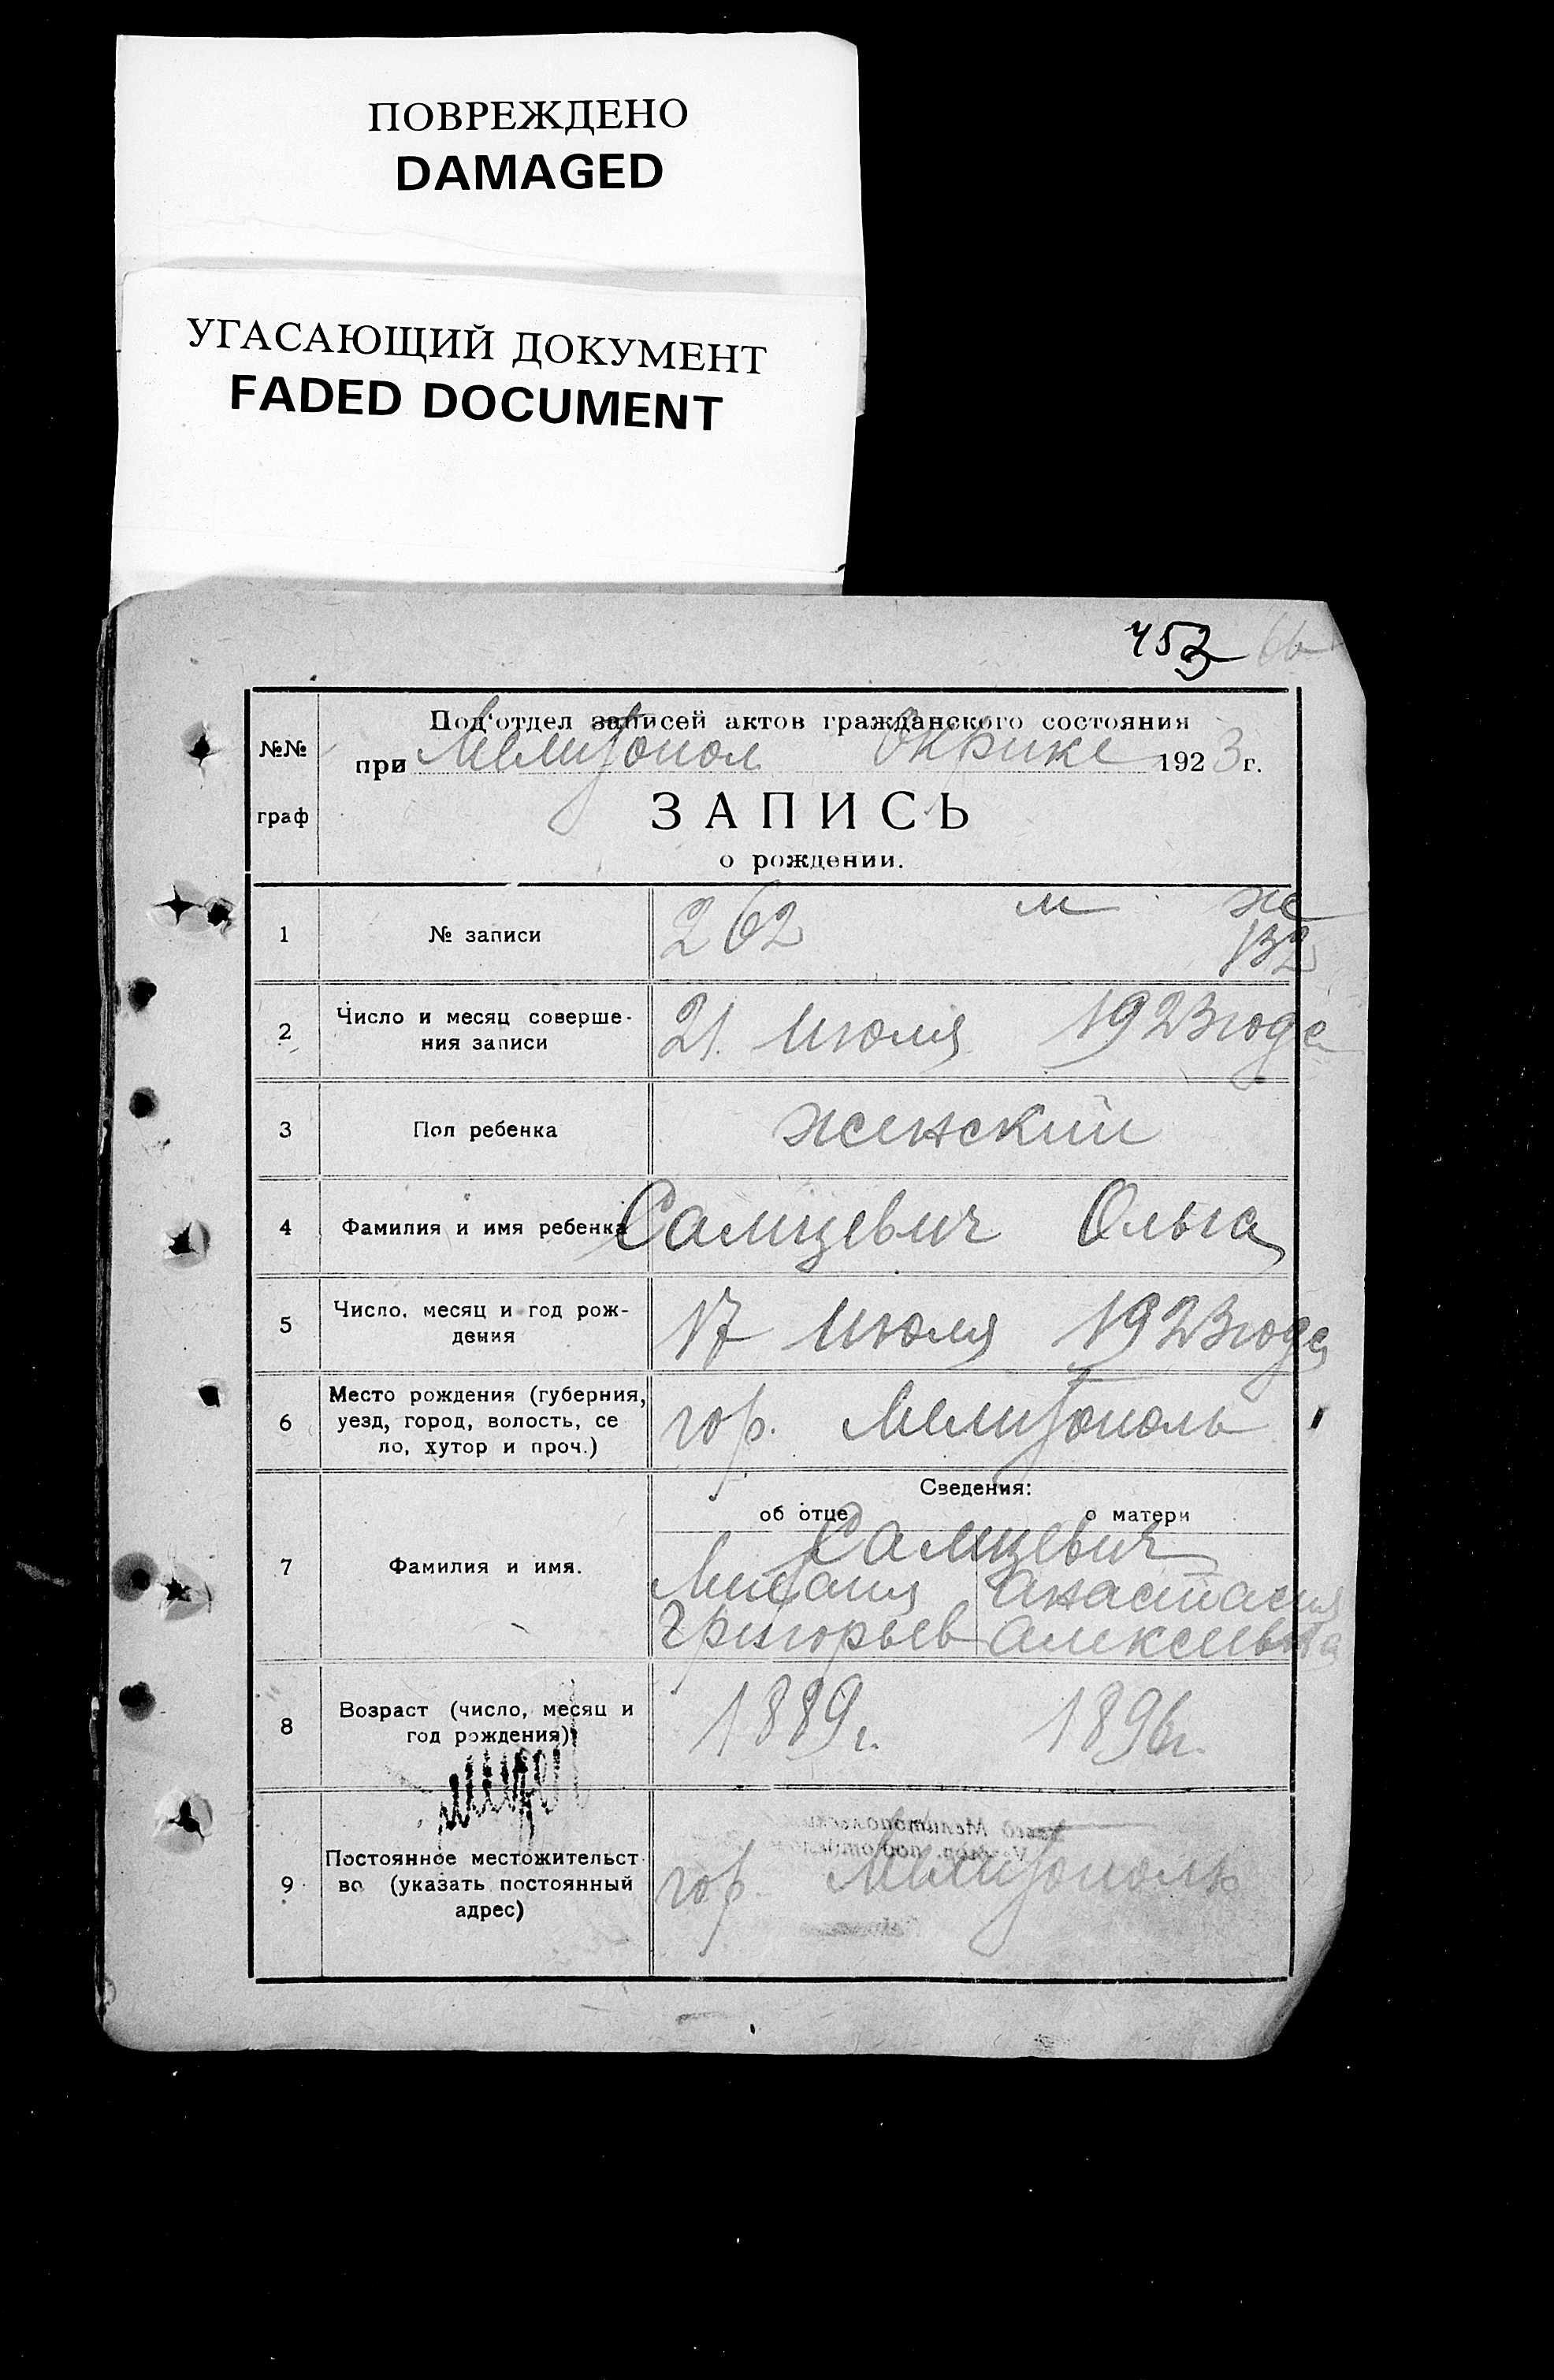 ПОВРЕЖДЕНО
DAMAGED
УГАСАЮЩИЙ ДОКУМЕНТ
FADED DOCUMENT
453
№№ граф
Под'отдел записей актов гражданского состояния
при Мелитопол Окрике 1923 г.
ЗАПИСЬ
о рождении.
1 № записи 262 м ж
132
2 Число и месяц соверше-
ния записи 21. Июля 1923 года
3 Пол ребенка женский
4 Фамилия и имя ребенка Самцевич Ольга
5 Число, месяц и год рож-
дения 17 Июля 1923 года
6 Место рождения (губерния,
уезд, город, волость, се
ло, хутор и проч.) гор. Мелитополь
Сведения:
об отце о матери
7 Фамилия и имя. Самцевич
Михаил Анастасия
Григорьев Алексеевна
8 Возраст (число, месяц и
год рождения) 1889 г. 1896 г.
9 Постоянное местожительст
во (указать постоянный
адрес) гор. Мелитополь